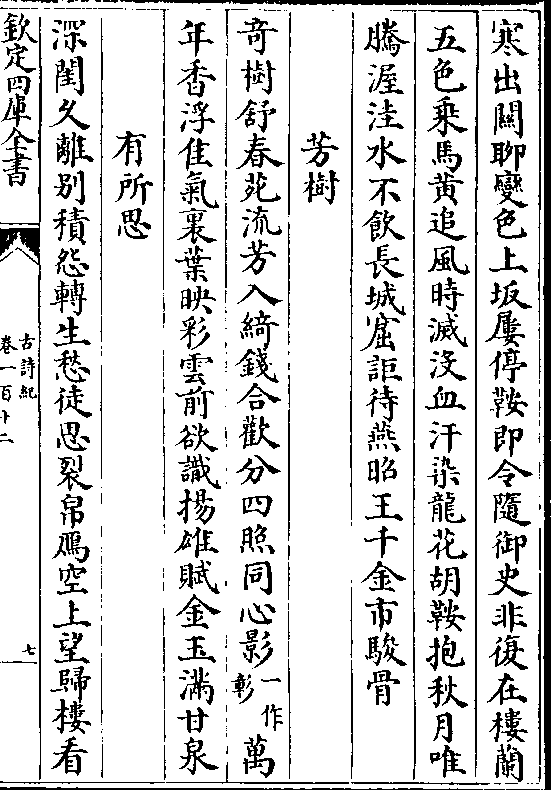 寒出關聊變色上坂屢停鞍即令隨御史非復在樓蘭
五色乗馬黄追風時滅没血汗染龍花胡鞍抱秋月唯
騰渥洼水不飲長城窟詎待燕昭王千金市駿骨
芳樹
竒樹舒春苑流芳入綺錢合歡分四照同心影一作彰萬
年香浮佳氣裏葉映彩雲前欲識揚雄賦金玉滿甘泉
有所思
深閨久離別積怨轉生愁徒思裂帛鴈空上望歸樓看
欽定四庫全書
古詩紀
卷一百十二
七